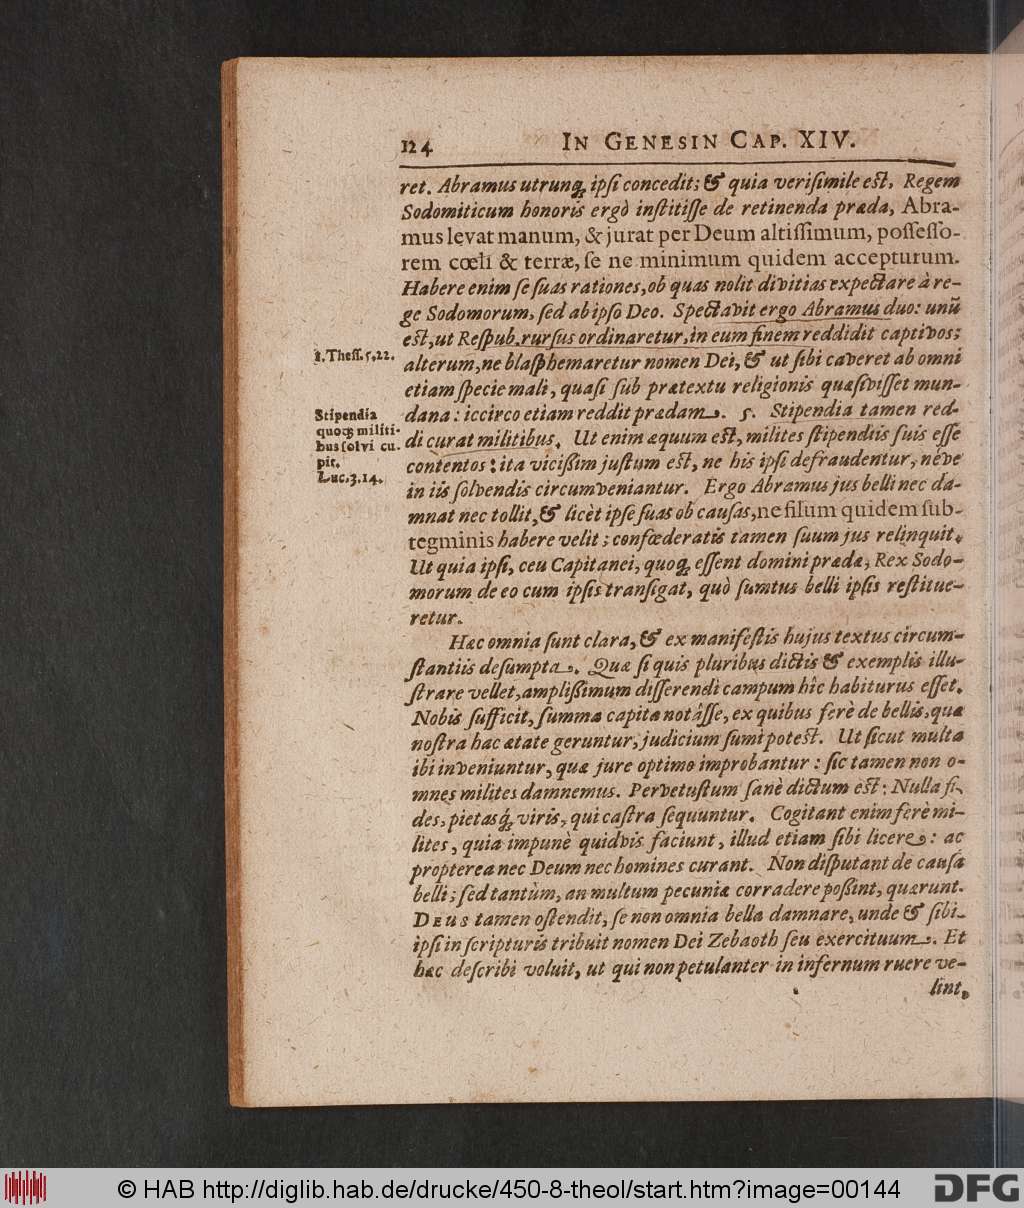 124
IN GENESIN CAP. XIV.
ret. Abramus utrunq; ipſi concedit; & quia veriſimile eſt, Regem
Sodomiticum honoris ergò inſtitiſſe de retinenda præda, Abra-
mus levat manum, & jurat per Deum altiſſimum, poſſeſſo-
rem cœli & terræ, ſe ne minimum quidem accepturum.
Habere enim ſe ſuas rationes, ob quas nolit divitias expectare à re-
ge Sodomorum, ſed ab ipſo Deo. Spectavit ergo Abramus duo: unũ
eſt, ut Reſpub. rurſus ordinaretur, in eum finem reddidit captivos;
1. Theſſ. 5, 22.
alterum, ne blaſphemaretur nomen Dei, & ut ſibi caveret ab omni
etiam ſpecie mali, quaſi ſub prætextu religionis quæſiviſſet mun-
dana: iccirco etiam reddit prædam. 5. Stipendia tamen red-
Stipendia
quoq; militi-
bus ſolvi cu-
pit.
Luc. 3. 14.
di curat militibus. Ut enim æquum eſt, milites ſtipendiis ſuis eſſe
contentos: ita viciſſim juſtum eſt, ne his ipſi defraudentur, neve
in iis ſolvendis circumveniantur. Ergo Abramus jus belli nec da-
mnat nec tollit, & licèt ipſe ſuas ob cauſas, ne filum quidem ſub-
tegminis habere velit; confœderatis tamen ſuum jus relinquit.
Ut quia ipſi, ceu Capitanei, quoq; eſſent domini prædæ, Rex Sodo-
morum de eo cum ipſis tranſigat, quò ſumtus belli ipſis reſtitue-
retur.
Hæc omnia ſunt clara, & ex manifeſtis hujus textus circum-
ſtantiis deſumpta. Quæ ſi quis pluribus dictis & exemplis illu-
ſtrare vellet, ampliſſimum diſſerendi campum hîc habiturus eſſet.
Nobis ſufficit, ſumma capita notâſſe, ex quibus ferè de bellis, quæ
noſtra hac ætate geruntur, judicium ſumi poteſt. Ut ſicut multa
ibi inveniuntur, quæ jure optimo improbantur: ſic tamen non o-
mnes milites damnemus. Pervetuſtum ſanè dictum eſt: Nulla fi-
des, pietasq́; viris, qui caſtra ſequuntur. Cogitant enim ferè mi-
lites, quia impunè quidvis faciunt, illud etiam ſibi licere: ac
propterea nec Deum nec homines curant. Non diſputant de cauſa
belli; ſed tantùm, an multum pecuniæ corradere poſſint, quærunt.
DEUS tamen oſtendit, ſe non omnia bella damnare, unde & ſibi
ipſi in ſcripturis tribuit nomen Dei Zebaoth ſeu exercituum. Et
hæc deſcribi voluit, ut qui non petulanter in infernum ruere ve-
lint,
© HAB http://diglib.hab.de/drucke/450-8-theol/start.htm?image=00144
DFG